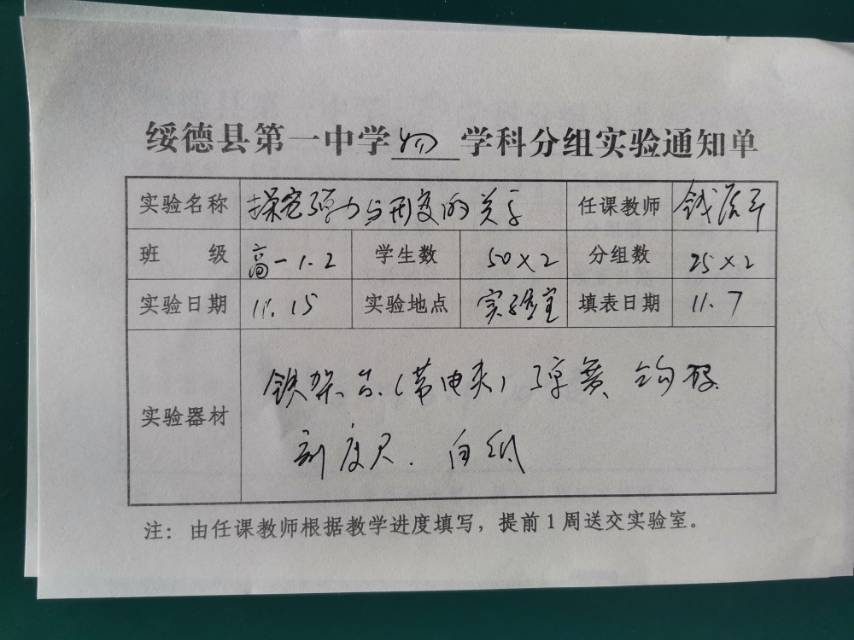 绥德县第一中学 物 学科分组实验通知单
实验名称 探究弹力与形变的关系 任课教师 钱
班 级 高一1.2 学生数 50×2 分组数 25×2
实验日期 11.15 实验地点 实验室 填表日期 11.7
实验器材 铁架台(带电夹) 弹簧 钩码
刻度尺. 白纸
注：由任课教师根据教学进度填写，提前1周送交实验室。